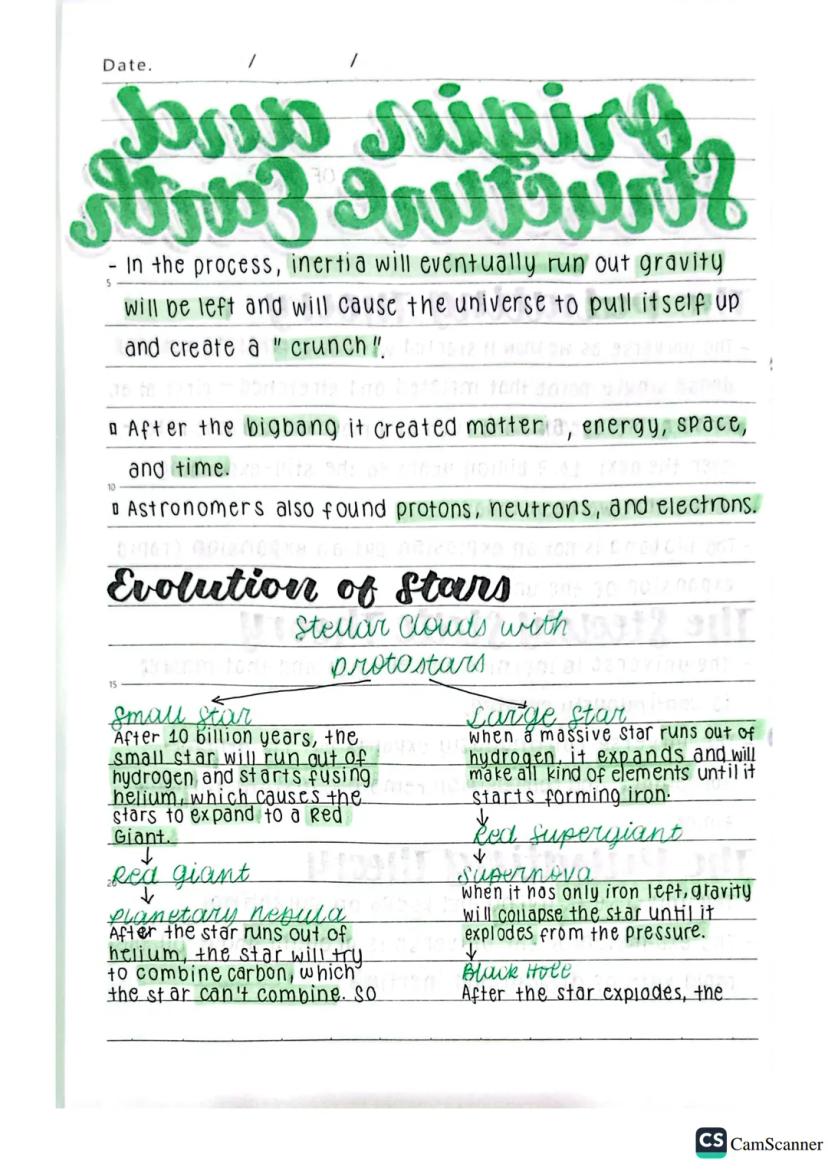 Date. / /
Origin and
Structure Earth
- In the process, inertia will eventually run out gravity
5
will be left and will cause the universe to pull itself up
and create a "crunch".
▯ After the bigbang it created matter, energy, space,
and time.
10
▯ Astronomers also found protons, neutrons, and electrons.
Evolution of Stars
Stellar Clouds with
protostars
15
Small Star
After 10 billion years, the
small star will run out of
hydrogen, and starts fusing
helium, which causes the
stars to expand to a Red
Giant.
↓
Red giant
↓
Planetary nebula
After the star runs out of
helium, the star will try
to combine carbon, which
the star can't combine. So
Large Star
when a massive star runs out of
hydrogen, it expands and will
make all kind of elements until it
starts forming iron.
↓
Red Supergiant
↓
Supernova
When it has only iron left, gravity
will collapse the star until it
explodes from the pressure.
↓
Black Hole
After the star explodes, the
CS CamScanner